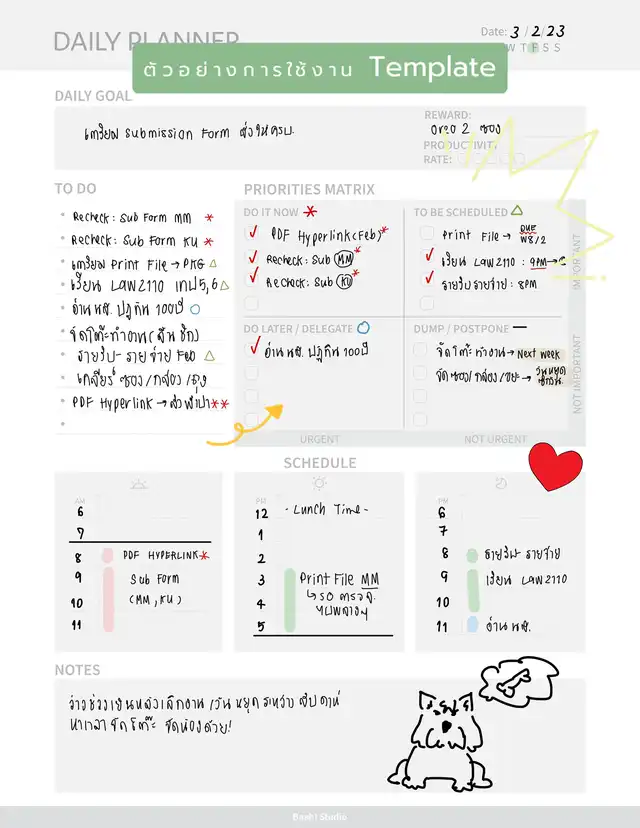 DAILY PLANNER
Date: 3 / 2 / 23
W T F S S
ตัวอย่างการใช้งาน Template
DAILY GOAL
เตรียม Submission Form ส่งให้ครบ.
REWARD:
Oreo 2 ซอง
PRODUCTIVITY
RATE:
TO DO
Recheck: Sub Form MM *
Recheck: Sub Form KU *
เตรียม Print File → PKG △
เรียน LAW2110 เทป5,6 △
อ่าน นส. ปฏิทิน 100ปี ○
จัดโต๊ะทำงาน
รายรับ-รายจ่าย Feb △
เคลียร์ ซอง/กล่อง/ถุง
PDF Hyperlink → **
PRIORITIES MATRIX
DO IT NOW *
PDF Hyperlink (Feb) *
Recheck: Sub MM *
Recheck: Sub KU *
TO BE SCHEDULED △
Print File → DUE W8/2
เรียน LAW2110 : 9PM →
รายรับรายจ่าย : 8PM
IMPORTANT
DO LATER / DELEGATE ○
อ่าน นส. ปฏิทิน 100ปี
DUMP / POSTPONE —
จัดโต๊ะทำงาน → Next week
จัดซอง/กล่อง/ขยะ → วันหยุด
NOT IMPORTANT
URGENT
NOT URGENT
SCHEDULE
AM
6
7
8 PDF HYPERLINK *
9 Sub Form
10 (MM, KU)
11
PM
12 - Lunch Time -
1
2
3 Print File MM
4 ↳ รอ ตรวจ
5
PM
6
7
8 รายรับ-รายจ่าย
9 เรียน LAW2110
10
11 อ่าน นส.
NOTES
ว่างช่วงเย็นหลังเลิกงาน /วันหยุดระหว่างสัปดาห์
หาเวลาจัดโต๊ะ จัดห้องด้วย!